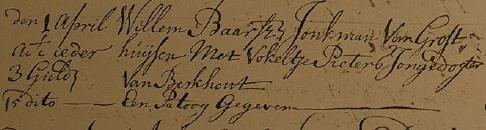 den 1 April Willem Baartsz Jonkman Van Groſt
act ieder huijsen Met Vokeltje Pieters Jongedogter
3 Guld Van Berkhout
15 dito — Een Patoog Gegeven —